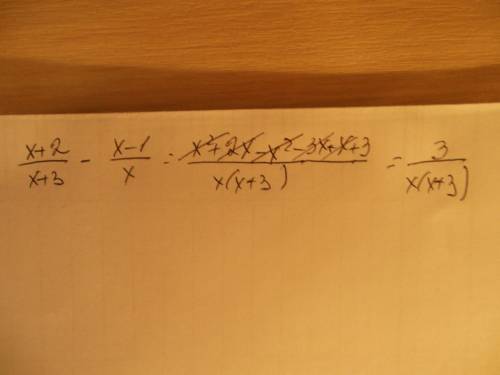 (x+2)/(x+3) - (x-1)/x = (x²+2x-x²-3x+x+3)/(x(x+3)) = 3/(x(x+3))